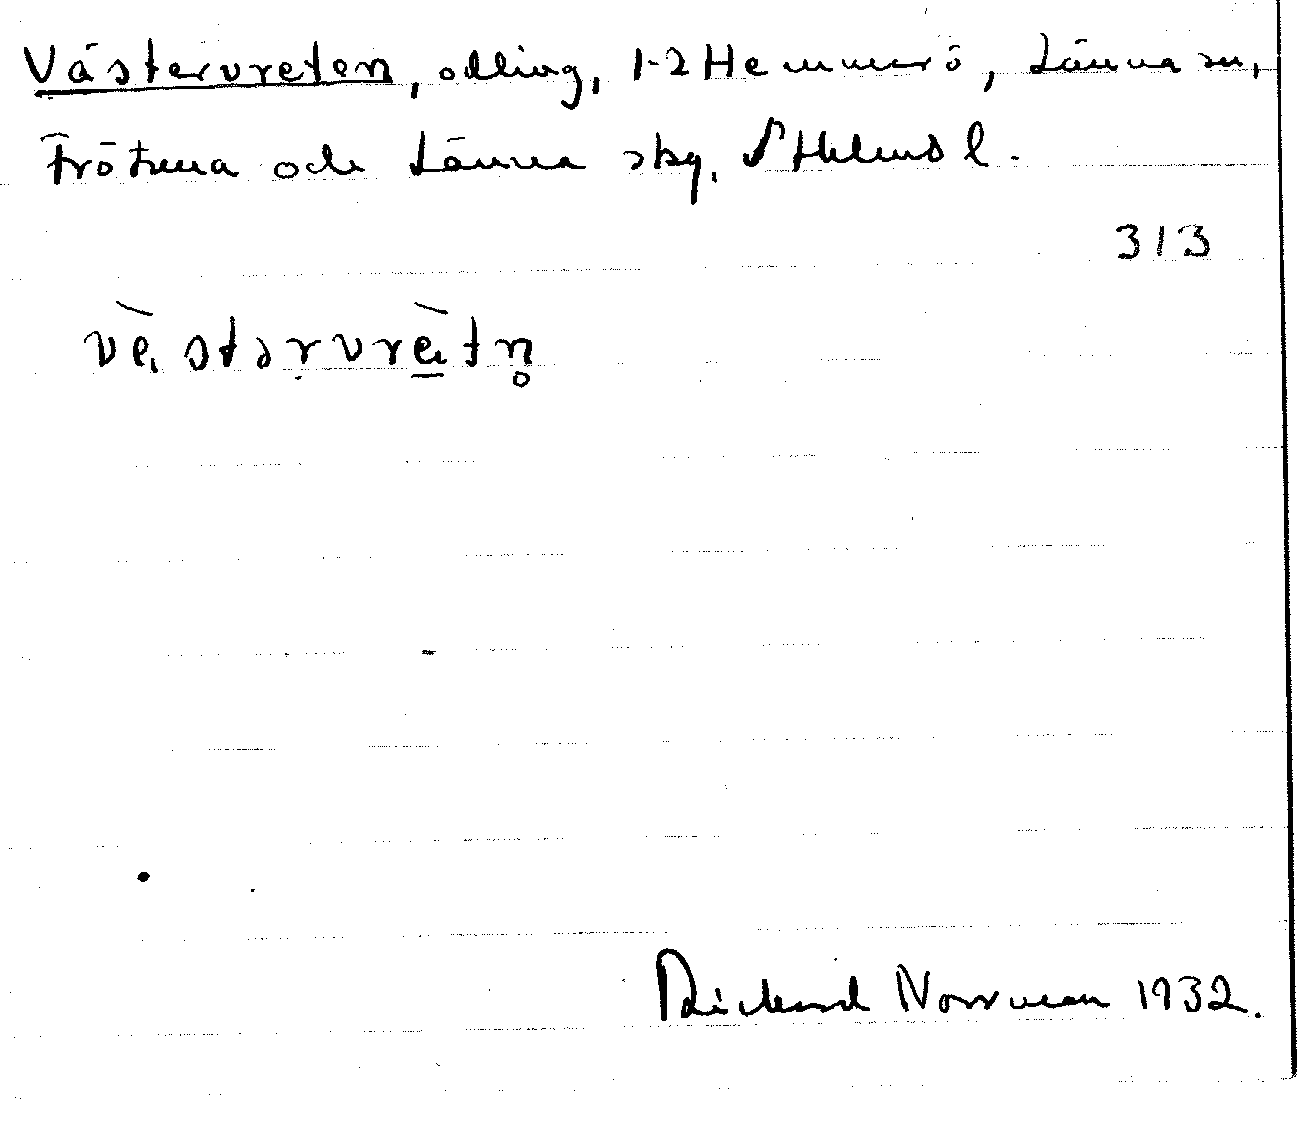 Västervreten, odling, 1-2 Hemmarö, Länna sn,
Frötuna och Länna skg, Sthlms l.
313
vè̄stərvrè̄tn̥
Rickard Norrman 1932.